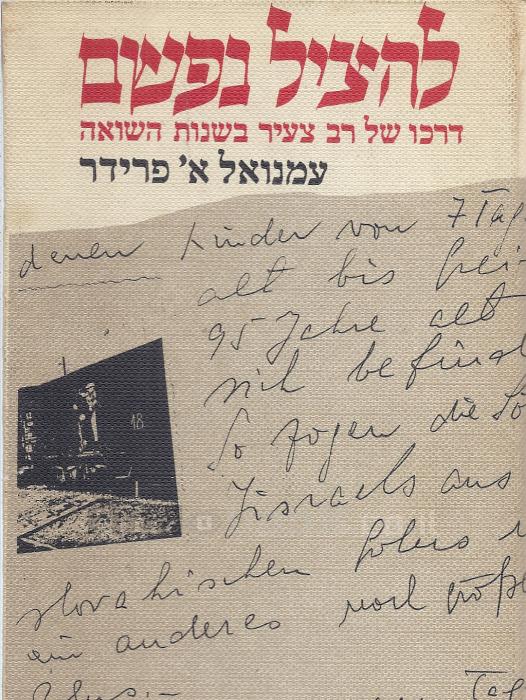 להציל נפשם
דרכו של רב צעיר בשנות השואה
עמנואל א' פרידר
denen Kinder von 7 Tag
alt bis
95 Jahre alt
sich
So zogen die Sö
Jisraels aus
18
slovakischen Golus
ein anderes noch große